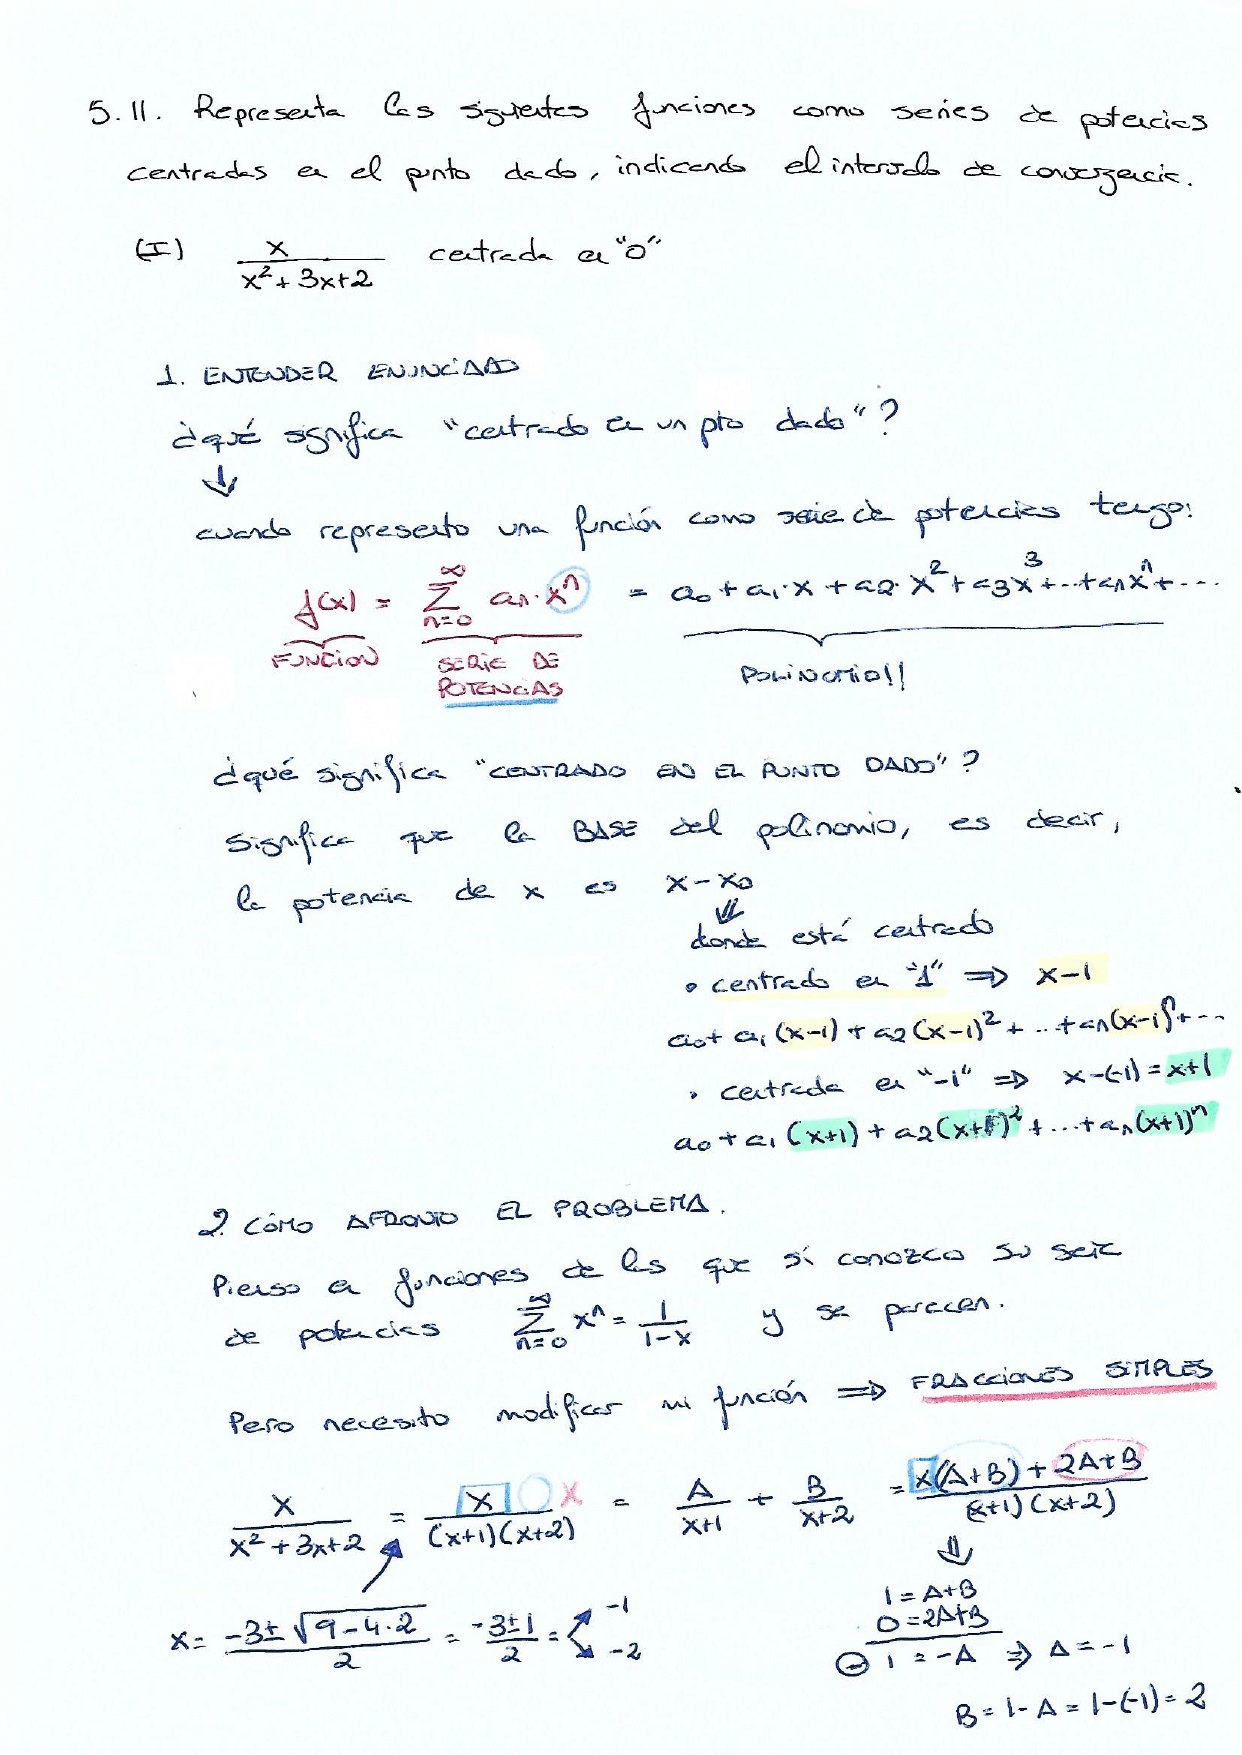 5.11. Representa las siguientes funciones como series de potencias
centradas en el punto dado, indicando el intervalo de convergencia.
(I) x / (x² + 3x + 2) centrada en "0"
1. ENTENDER ENUNCIADO
¿qué significa "centrado en un pto dado"?
⇓
cuando represento una función como serie de potencias tengo:
f(x) = ∑_{n=0}^{∞} an · xⁿ = a0 + a1·x + a2·x² + a3x³ + ... + anxⁿ + ...
FUNCION SERIE DE POTENCIAS POLINOMIO!!
¿qué significa "CENTRADO EN EL PUNTO DADO"?
significa que la BASE del polinomio, es decir,
la potencia de x es x - x0
⇓
donde está centrado
• centrado en "1" ⇒ x-1
a0 + a1(x-1) + a2(x-1)² + ... + an(x-1)ⁿ + ...
• centrada en "-1" ⇒ x-(-1) = x+1
a0 + a1(x+1) + a2(x+1)² + ... + an(x+1)ⁿ
2. CÓMO AFRONTO EL PROBLEMA.
Pienso en funciones de las que sí conozco su serie
de potencias ∑_{n=0}^{∞} xⁿ = 1/(1-x) y se parecen.
Pero necesito modificar mi función ⇒ FRACCIONES SIMPLES
x / (x² + 3x + 2) = x / ((x+1)(x+2)) = A/(x+1) + B/(x+2) = (x(A+B) + 2A+B) / ((x+1)(x+2))
x
⇓
1 = A+B
0 = 2A+B
x = (-3 ± √(9-4·2)) / 2 = (-3±1)/2 = -1
-2
⊖ 1 = -A ⇒ A = -1
B = 1-A = 1-(-1) = 2